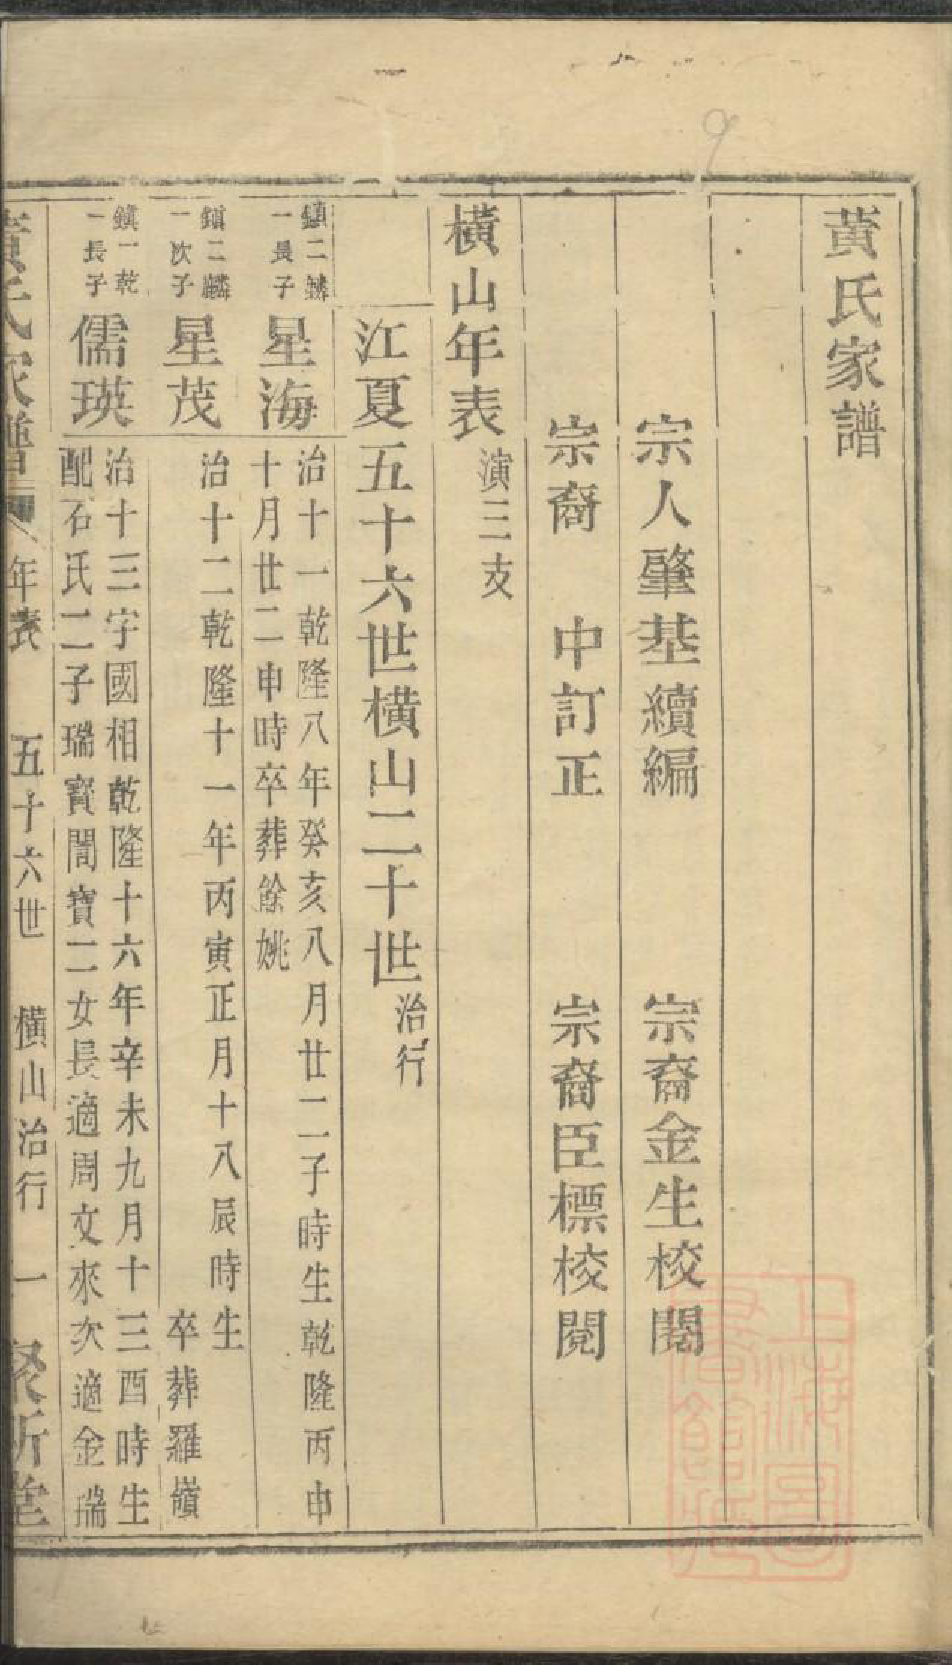 黃氏家譜
宗人肇基續編
宗裔金生校閱
宗裔 中訂正
宗裔臣標校閱
橫山年表 演三支
江夏五十六世橫山二十世 治行
鎮二麟
一長子
星海
治十一乾隆八年癸亥八月廿二子時生乾隆丙申
十月廿二申時卒葬餘姚
鎮二麟
一次子
星茂
治十二乾隆十一年丙寅正月十八辰時生
卒葬羅嶺
鎮一乾
一長子
儒瑛
治十三字國相乾隆十六年辛未九月十三酉時生
配石氏二子瑞寶誾寶二女長適周文來次適金瑞
黃氏家譜 年表 五十六世 橫山治行 一 聚斯堂
上海圖書館藏